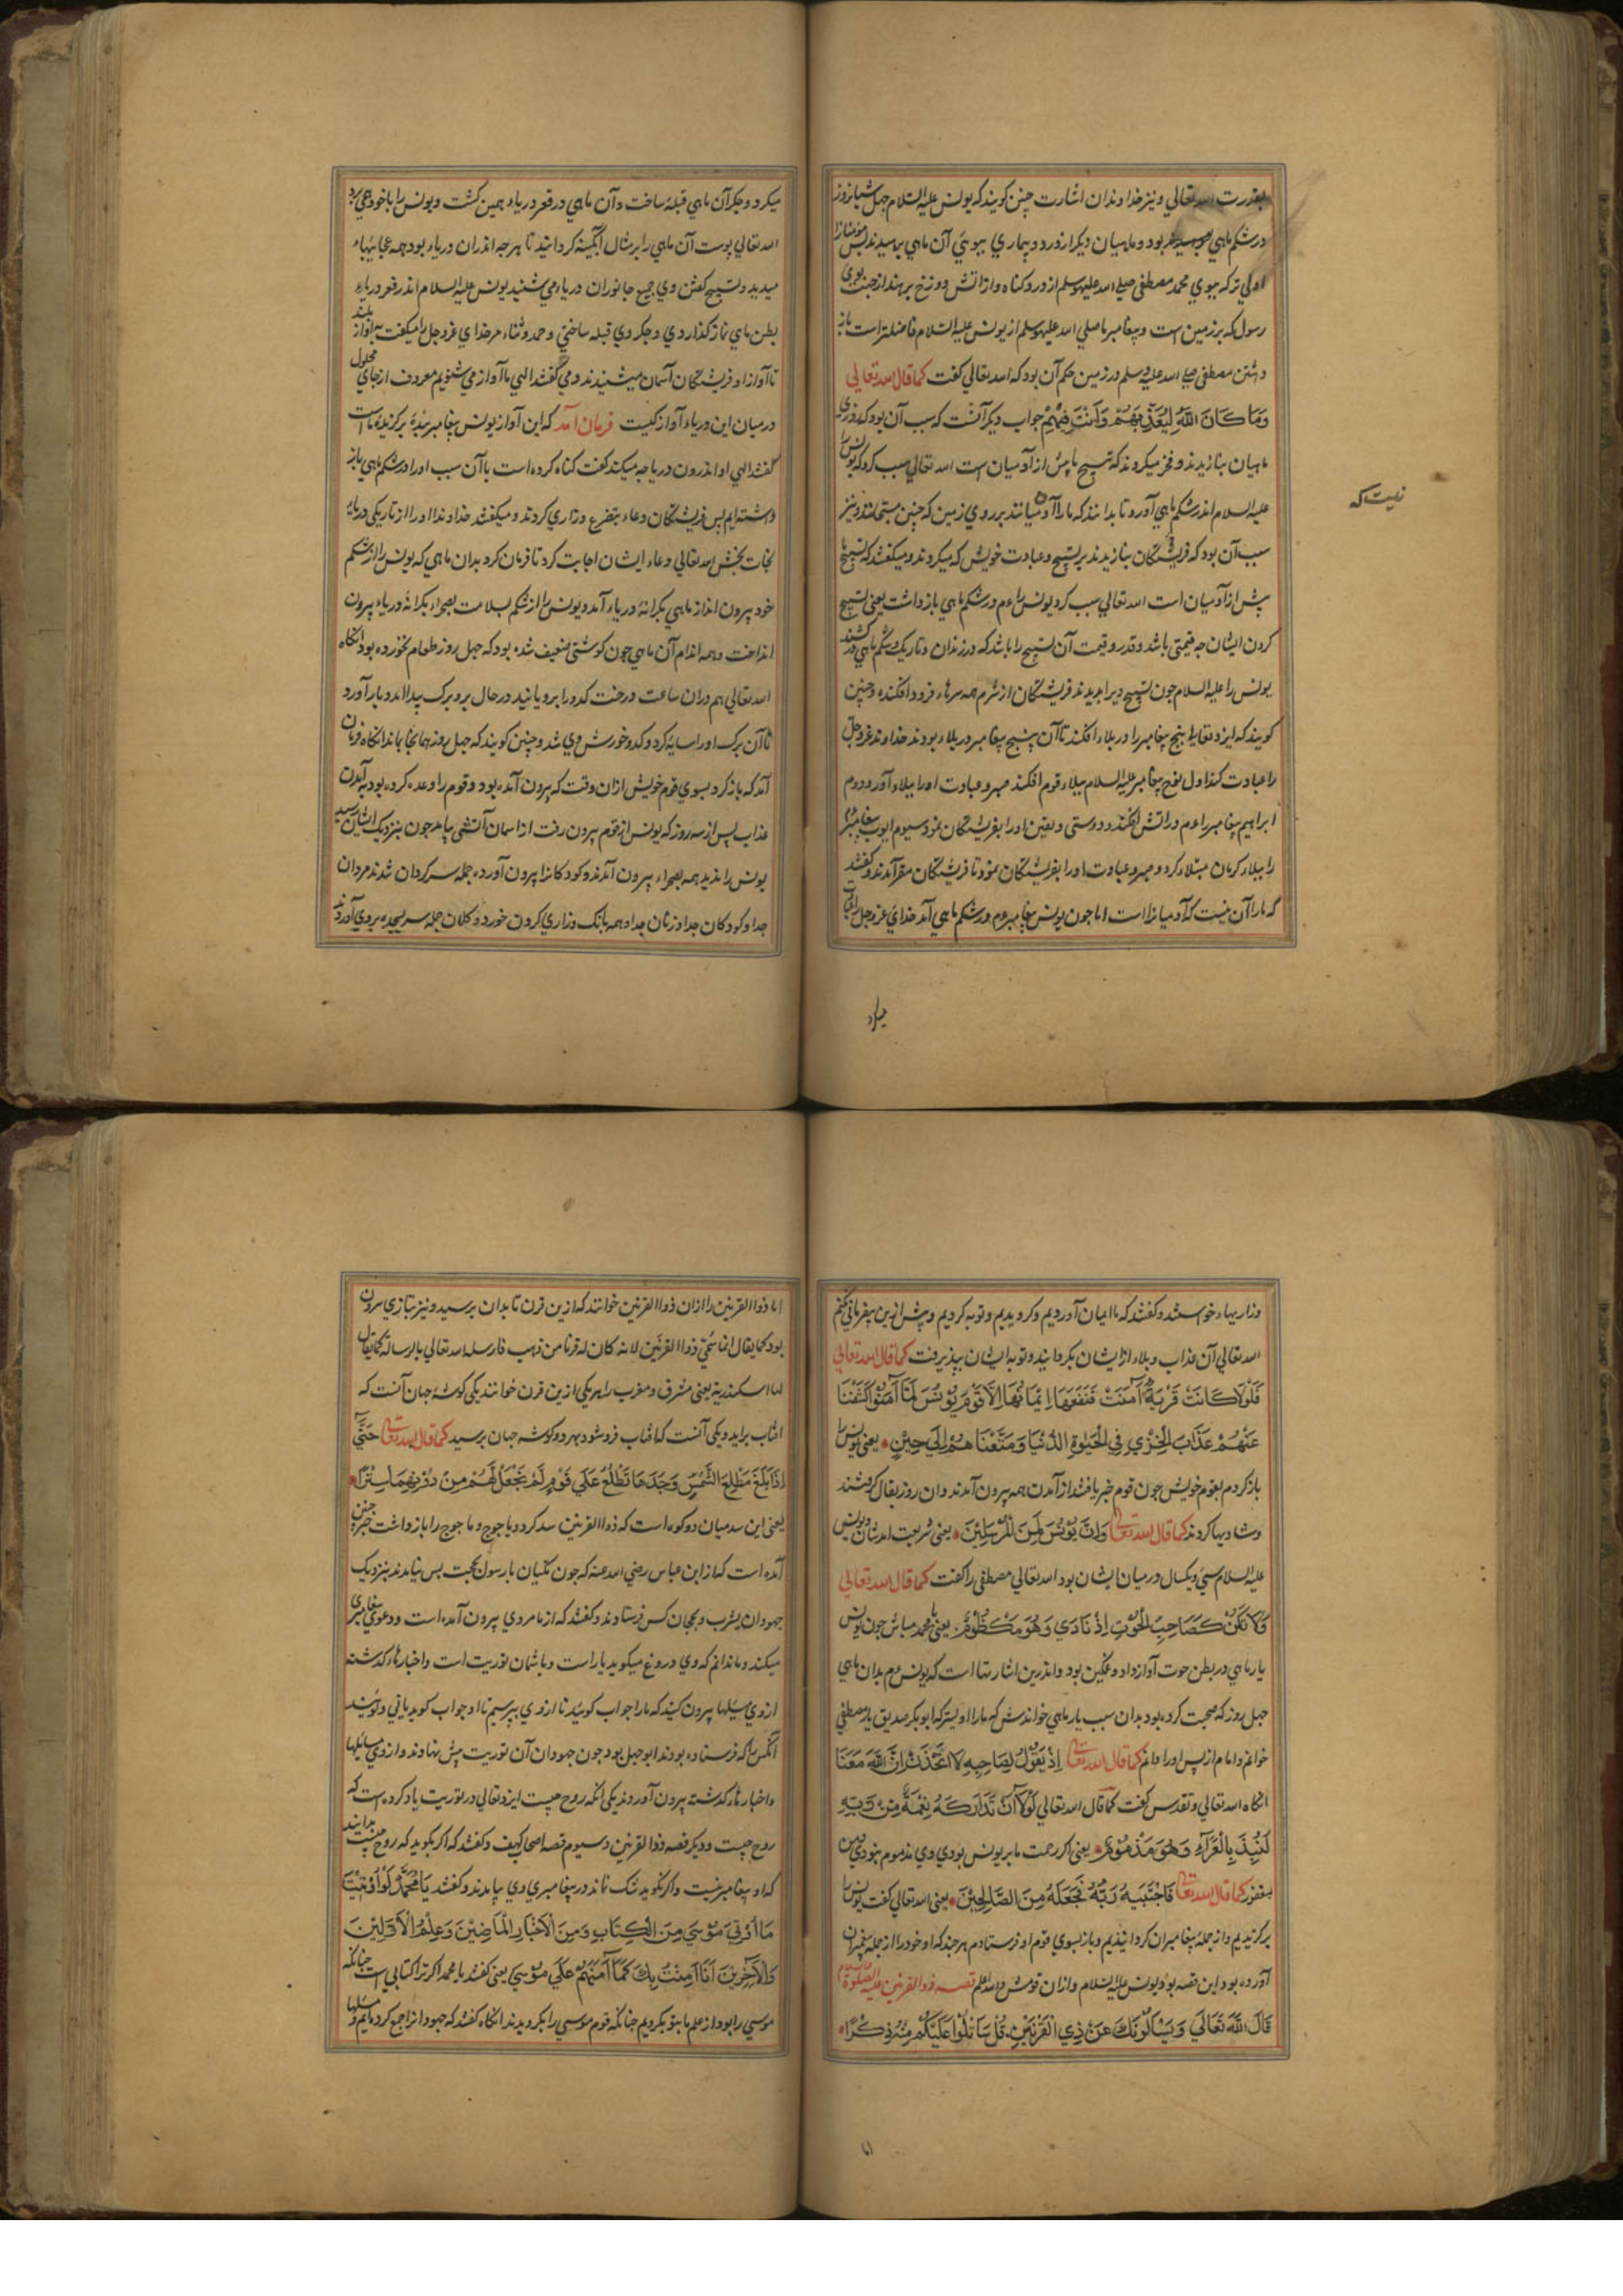 بقدرت الله تعالي ونیز خداوندان اشارت چنین کویند که یونس علیه السلام چهل شبانروز
در شکم ماهي بود و ماهیان دیکر از درد و بیماري ببوئي آن ماهي برسیدند پس مؤمنانرا
اولي تر که ببوي محمد مصطفي صلي الله علیه وسلم از درد و کناه و از آتش دوزخ برهند از جنت بوي
رسول که بر زمین است و پیغامبر ما صلي الله علیه وسلم از یونس علیه السلام فاضلتر است باز
داشتن مصطفي صلي الله علیه وسلم در زمین حکم آن بود که الله تعالي کفت کما قال الله تعالي
وَمَا كَانَ اللَّهُ لِيُعَذِّبَهُمْ وَأَنْتَ فِيهِمْ جواب دیکر آنست که سبب آن بود که روزي
ماهیان بنازیدند و فخر میکردند که تسبیح ما پیش از آدمیان است الله تعالي سبب کرد که یونس را
علیه السلام اندر شکم ماهي آورد تا بدانند که مارا آدمیانند بر روي زمین که چنین مسبحانند و نیز
نیست که
سبب آن بود که فریشتکان بنازیدند بر تسبیح و عبادت خویش که میکردند و میکفتند که تسبیح ما
پیش از آدمیان است الله تعالي سبب کرد یونس را عم در شکم ماهي بازداشت یعني تسبیح
کردن ایشان چه قیمتي باشد و قدر و قیمت آن تسبیح را باشد که در زندان و تاریک و شکم ماهي در کشند
یونس را علیه السلام چون تسبیح ویرا بدیدند فریشتکان از شرم همه سرها فرود افکنده و چنین
کویند که ایزد تعالي پنج پیغامبر را در بلاء افکند تا آن پنج پیغامبر در بلاء بودند خداوند عز و جل
را عبادت کنند اول نوح پیغامبر علیه السلام ببلاء قوم افکند صبر و عبادت اورا ببلاء آورد دوم
ابراهیم پیغامبر را عم در آتش افکند و دوستي و یقین اورا بفریشتکان نمود سیوم ایوب پیغامبر
را ببلاء کرمان مبتلاء کرد و صبر و عبادت اورا بفریشتکان نمود تا فریشتکان مقر آمدند و کفتند
که مارا آن نیست که آدمیانرا است اما چون یونس پیغامبر عم در شکم ماهي آمد خداي عز و جل را
میکرد و جکر آن ماهي قبله ساخت و آن ماهي در قعر دریاء همین کشت و یونس را با خود همي برد
الله تعالي پوست آن ماهي را بر مثال آبکینه کردانید تا هر چه اندران دریاء بود همه عجایبهاء
میدید و تسبیح کفتن وي جمیع جانوران دریاء مي شنید یونس علیه السلام اندر قعر دریاء
بطن ماهي نماز کذاردي و جکر وي قبله ساختي و حمد و ثناء مر خداي عز و جل را میکفت به آواز بلند
تا آواز او فریشتکان آسمان میشنیدند و مي کفتند الهي ما آواز مي شنویم معروف از جاي مجهول
در میان این دریاء آواز کیست فرمان آمد که این آواز یونس پیغامبر بندهٔ برکزیدهٔ ما است
کفتند الهي او اندرون دریا چه میکند کفت کناه کرده است با آن سبب اورا در شکم ماهي باز
داشته ایم پس فریشتکان دعاء بتضرع و زاري کردند و میکفتند خداوندا اورا از تاریکي دریاء
نجات بخش الله تعالي دعاء ایشان اجابت کرد تا فرمان کرد بدان ماهي که یونس را از شکم
خود بیرون انداز ماهي بکرانهٔ دریاء آمد و یونس را از شکم بسلامت بصحراء بکرانهٔ دریاء بیرون
انداخت و همه اندام آن ماهي چون کوشتي ضعیف شده بود که چهل روز طعام نخورده بود آنکاه
الله تعالي هم دران ساعت درخت کدو را برویانید در حال برو برک پیدا آمد و بار آورد
تا آن برک اورا سایه کرد و کدو خورش وي شد و چنین کویند که چهل روز همانجا بماند آنکاه فرمان
آمد که باز کرد بسوي قوم خویش ازان وقت که بیرون آمده بود و قوم را وعده کرده بود به آمدن
عذاب پس از سه روز که یونس از قوم بیرون رفت از آسمان آتشي بیامد چون بنزدیک ایشان رسید
یونس را ندیدند همه بصحراء بیرون آمدند و کودکانرا بیرون آوردند جمله سرکردان شدند مردان
جدا و کودکان جدا و زنان جدا و همه بانک و زاري کردن خورد و کلان جمله سر بسجده بروي آوردند
میکرد
وزاریهاء خواستند و کفتند که ما ایمان آوردیم و کرویدیم و توبه کردیم و پیش ازین بیفرماني نکنیم
الله تعالي آن عذاب و بلاء از ایشان بکردانید و توبه ایشان بپذیرفت کما قال الله تعالي
فَلَوْلَا كَانَتْ قَرْيَةٌ آمَنَتْ فَنَفَعَهَا إِيمَانُهَا إِلَّا قَوْمَ يُونُسَ لَمَّا آمَنُوا كَشَفْنَا
عَنْهُمْ عَذَابَ الْخِزْيِ فِي الْحَيٰوةِ الدُّنْيَا وَمَتَّعْنَاهُمْ إِلَي حِينٍ یعني یونس را
باز کردم بقوم خویش چون قوم خبر یافتند از آمدن همه بیرون آمدند و ان روز بقال کرفتند
و شادیها کردند کما قال الله تعالي وَإِنَّ يُونُسَ لَمِنَ الْمُرْسَلِينَ یعني شریعت ایشان و یونس
علیه السلام سي و یکسال در میان ایشان بود الله تعالي مصطفي را کفت کما قال الله تعالي
وَلَا تَكُنْ كَصَاحِبِ الْحُوتِ إِذْ نَادَي وَهُوَ مَكْظُومٌ یعني یا محمد مباش چون یونس
یار ماهي در بطن حوت آواز داد و غمکین بود و اندرین اشارتها است که یونس عم بدان ماهي
چهل روز که صحبت کرده بود بدان سبب یار ماهي خواندش که مارا اولیتر که ابوبکر صدیق یار مصطفي
خوانم و امام از پس اورا دانم کما قال الله تعالي إِذْ يَقُولُ لِصَاحِبِهِ لَا تَحْزَنْ إِنَّ اللَّهَ مَعَنَا
آنکاه الله تعالي و تقدس کفت کما قال الله تعالي لَوْلَا أَنْ تَدَارَكَهُ نِعْمَةٌ مِنْ رَبِّهِ
لَنُبِذَ بِالْعَرَاءِ وَهُوَ مَذْمُومٌ یعني اکر رحمت ما بر یونس بودي وي مذموم نبودي
کما قال الله تعالي فَاجْتَبَيهُ رَبُّهُ فَجَعَلَهُ مِنَ الصَّالِحِينَ یعني الله تعالي کفت یونس را
برکزیدیم و از جملهٔ پیغامبران کردانیدیم و باز بسوي قوم او فرستادم هر چند که او خود را از جمله
آورده بود این قصه بود یونس علیه السلام وازان قومش والله اعلم قصه ذو القرنین علیه الصلوة
قَالَ اللَّهُ تَعَالَي وَيَسْأَلُونَكَ عَنْ ذِي الْقَرْنَيْنِ قُلْ سَأَتْلُوا عَلَيْكُمْ مِنْهُ ذِكْرًا
اما ذو القرنین را ازان ذو القرنین خوانند که ازین قرن تا بدان برسید و نیز بتازي سرون
بود کما یقال انما سُمّي ذو القرنین لانه کان له قرنا من ذهب فارسله الله تعالي بالرسالة کما یقال
لها اسکندریه یعني مشرق و مغرب را هر یکي ازین قرن خوانند یکي کوشهٔ جهان آنست که
آفتاب براید و یکي آنست که آفتاب فروشود بهر دو کوشه جهان برسید کما قال الله تعالي حَتَّي
إِذَا بَلَغَ مَطْلِعَ الشَّمْسِ وَجَدَهَا تَطْلُعُ عَلَي قَوْمٍ لَمْ نَجْعَلْ لَهُمْ مِنْ دُونِهَا سِتْرًا
یعني این سد میان دو کوه است که ذو القرنین سد کرد و یاجوج و ماجوج را بازداشت خبر چنین
آمده است که از ابن عباس رضي الله عنه که چون مکیان با رسول بحجت بس نیامدند بنزدیک
جهودان یثرب و کس فرستادند و کفتند که از ما مردي بیرون آمده است و دعوي پیغامبري
میکند و ما ندانم که وي دروغ میکوید یا راست و با شمان توریت است و اخبارهاء کذشته
ازوي مسئلها بیرون کنید که مارا جواب کویید تا ازوي بپرسیم تا او جواب کوید یا ني
آنکس را که فرستاده بودند ابوجهل بود چون جهودان آن توریت پیش نهادند و ازوي مسائلها
و اخبارهاء کذشته بیرون آوردند یکي آنکه روح چیست ایزد تعالي در توریت یاد کرده است که
روح چیست و دیکر قصه ذو القرنین و سیوم قصه اصحاب کهف و کفتند که اکر بکوید که روح چیست بدانید
که او پیغامبر نیست و اکر نکوید شک نماند در پیغامبري وي بیامدند و کفتند يَا مُحَمَّدُ لَوْ أُوتِيتَ
مَا أُوتِيَ مُوسَي مِنَ الْكِتَابِ وَمِنَ الْأَخْبَارِ الْمَاضِينَ وَعِلْمُ الْأَوَّلِينَ
وَالْآخِرِينَ أَنَّا آمَنْتُ بِكَ كَمَا آمَنَهُمْ عَلَي مُوسَي یعني کفتند یا محمد اکر ترا کتابي است چنانکه
موسي را بود از علم ما بتو بکرویم چنانکه قوم موسي را بکرویدند آنکاه کفتند که جهودانرا جمع کرده
اما